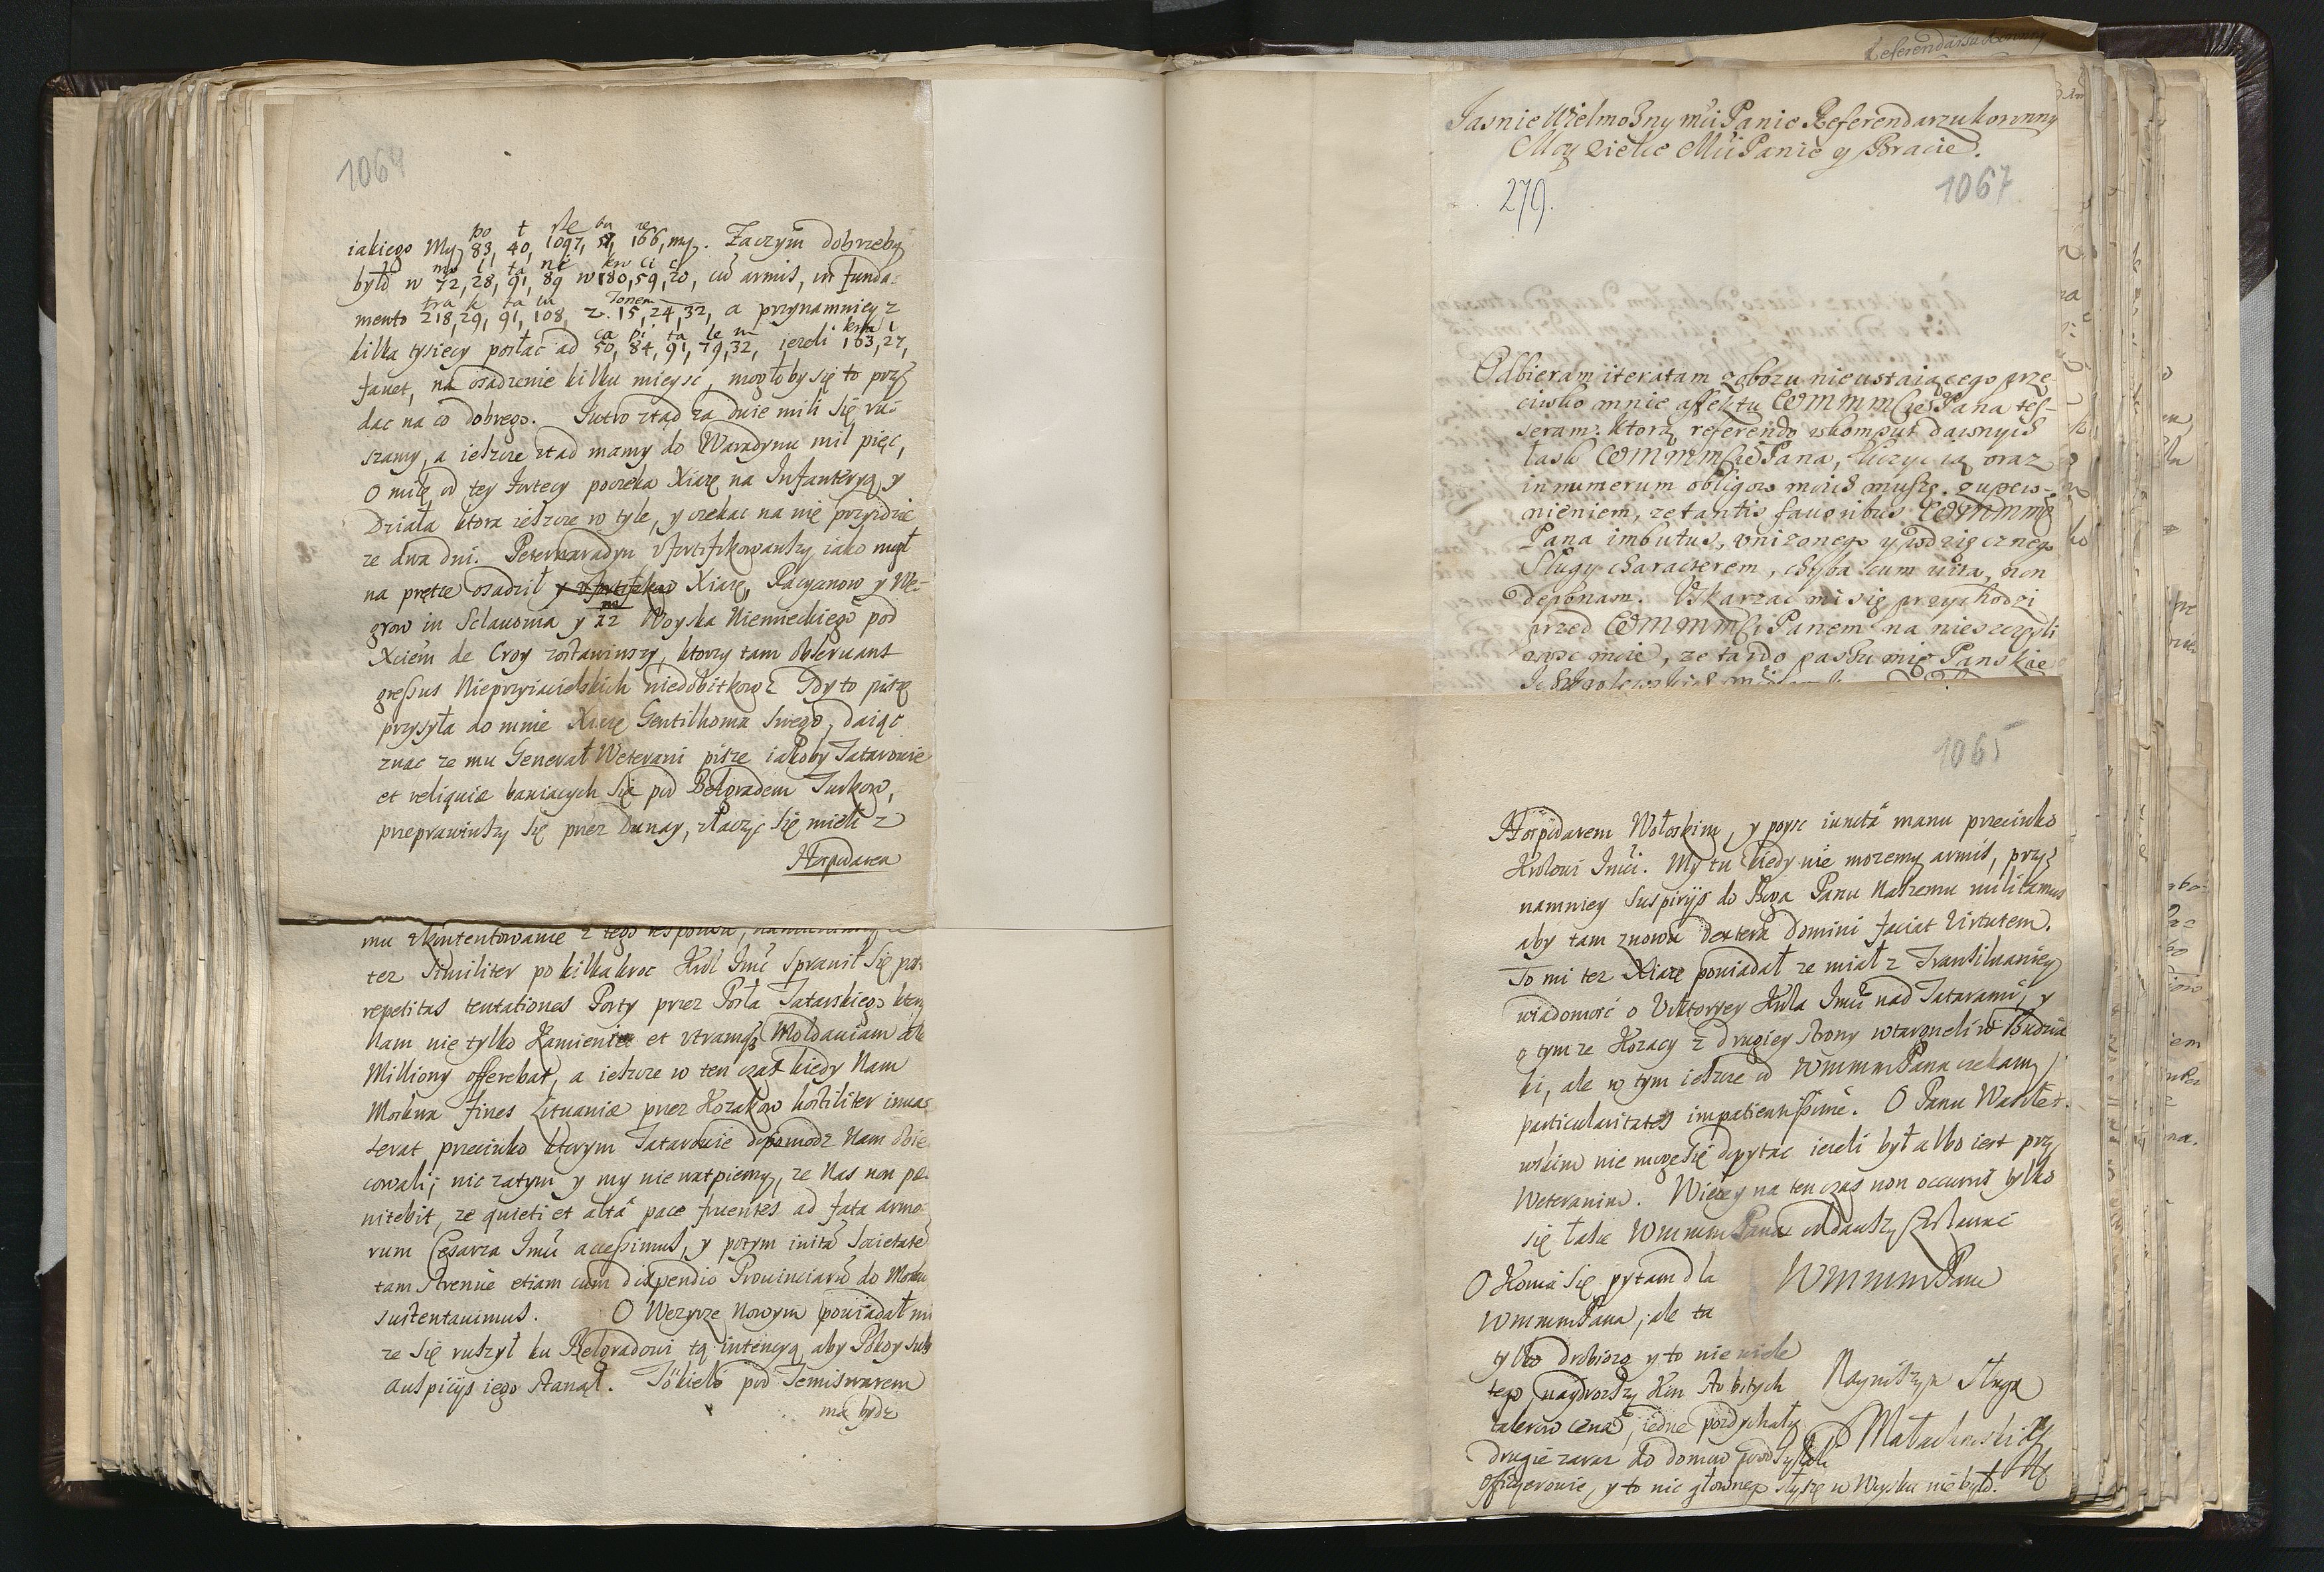 1064
po t rze bu ie
iakiego My, 83, 40, 1097, 51, 166, my. Zaczym dobrzeby
było w 72, 28, 91, 89 w 180, 59, 20, cū armis, in funda-
tra k ta tu
mento 218, 29, 91, 108, z. 15, 24, 32, a przynamniey z
ca pi ta le m
kilka tysięcy posłac ad 50, 84, 91, 79, 32, iezeli 163, 27,
fauet, na osadzenie kilku mieysc, mogłoby się to przy
dac na co dobrego. Jutro ztąd za dwie mili się ru-
szamy, a ieszcze ztad mamy do Waradynu mil pięc,
O milę od tey fortecy poczeka Xiąze na Infanteryą, y
Działa ktora ieszcze w tyle, y czekac na nię przyidzie
ze dwa dni. Peterwaradyn ufortifikowawszy, iako mogł
na prętce osadził Xiąze, Racyanow y Wę-
grow in Sclauonia y 12 Woyska Niemieckiego pod
Xciem de Croy zostawiwszy, ktorzy tam obseruant
gressus Nieprzyiacielskich niedobitkow. Gdy to piszę
przysyła do mnie Xiąze Gentilhoma swego, daiąc
znac ze mu Generał Weterani pisze iakoby Tatarowie
et reliquiæ bawiacych się pod Belgradem Turkow,
przeprawiwszy się przez Dunay, złaczyc się mieli z
Hospodarem
mu zkontentowanie z tego responsu,
tez similiter po kilkakroc Krol Imć sprawił się po
repetitas tentationes Porty przez Posła Tatarskiego ktory
Nam nie tylko Kamieniec et utramq Moldauiam ale
Milliony offerebat, a ieszcze w ten czas kiedy Nam
Moskwa fines Lituaniæ przez Kozakow hostiliter inua-
serat przeciwko ktorym Tatarowie dopomodz Nam obie-
cowali; nic zatym y my nie watpiemy, ze Nas non pœ-
nitebit, ze quieti et altâ pace fruentes ad fata armo-
rum Cesarza Imći accessimus, y potym inita Societate
tam strenue etiam cum dispendio Prouinciarū do Moskw
sustentauimus. O Wezyrze Nowym powiadał mi
ze się ruszył ku Belgradowi tą intencyą aby Pokoy sub
auspicijs iego stanął. Tökieli pod Temiswarem
ma bydz
Jasnie Wielmozny mći Panie Referendarzu koronny
Moy Wielce Mći Panie y Bracie.
279.
1067
Odbieram iteratam zobozu nieustaiącego prze-
ciwko mnie affektu WMMMści Pana tes-
seram. ktorą referendo wkomput dawnych
łask WMMMści Pana, liczyc ią oraz
in numerum obligow moich muszę. zupew-
nieniem, ze tantis fauoribus WMMMP
Pana imbutus, unizonego y wdzięcznego
Sługi characterem, chyba cum vita, non
deponam. Uskarzac mi się przychodzi
przed WMMMści Panem na nieszczęsli
wosc moię, ze tardo passu mię Panskie
1065
Hospodarem Wołoskim, y poysc iunctâ manu przeciwko
Krolowi Imći. My tu kiedy nie mozemy armis, przy
namniey suspirijs do Boga Panu Naszemu militamus
aby tam znowu dextera Domini faciat Virtutem.
To mi tez Xiąze powiadał ze miał z Transiluaniey
wiadomość o Viktoryey Krola Imći nad Tatarami, y
o tym ze Kozacy z drugiey strony wtargneli w Budzia
ki, ale w tym ieszcze od WMMMPana czekam
particularitates impatientissime. O Panu Wasilk-
wskim nie mogę się dopytac iezeli był albo iest przy
Weteranim. Więcey na ten czas non occurrit tylko
się łasce WMMMPana oddawszy zostawac
WMMMPana
O Konia się pytam dla
WMMMPana, ale ta
tylko drobiozg y to nie wiele
tego, naydrozszy Kon sto bitych
talerow cena, iedne pozdychały
drugie zaraz do domow porozsyłali
Officyerowie, y to nic głownego słyszę w Woysku nie było.
Nayniszszym sługa
Małachowski